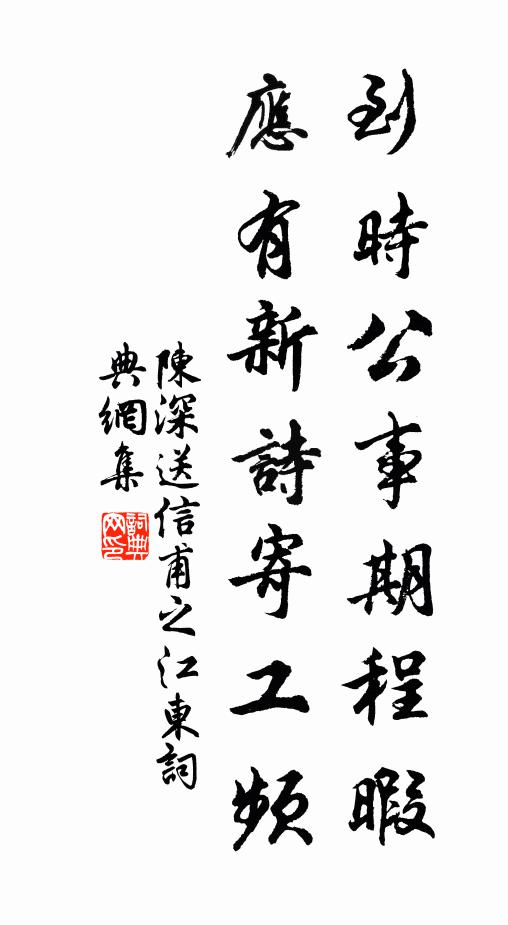 到時公事期程暇
應有新詩寄工頻
陳深送信甫之江東詞
典網集
詞典網印